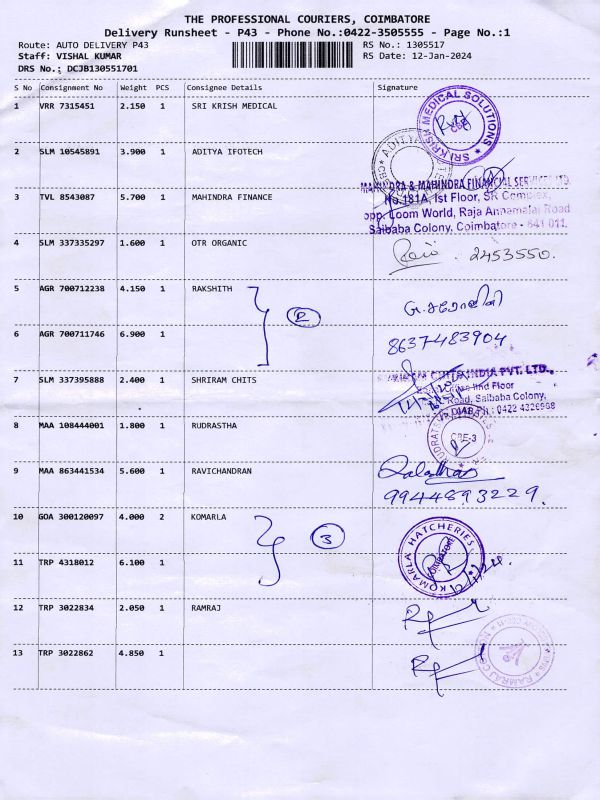 THE PROFESSIONAL COURIERS, COIMBATORE
Delivery Runsheet - P43 - Phone No.:0422-3505555 - Page No.:1
Route: AUTO DELIVERY P43 RS No.: 1305517
Staff: VISHAL KUMAR RS Date: 12-Jan-2024
DRS No.: DCJB130551701
S No Consignment No Weight PCS Consignee Details Signature
1 VRR 7315451 2.150 1 SRI KRISH MEDICAL
SRI KRISH MEDICAL SOLUTIONS
CBE
2 SLM 10545891 3.900 1 ADITYA IFOTECH
ADITYA
3 TVL 8543087 5.700 1 MAHINDRA FINANCE
MAHINDRA & MAHINDRA FINANCIAL SERVICES LTD.
No.181A, Ist Floor, SR Complex,
opp. Loom World, Raja Annamalai Road
Saibaba Colony, Coimbatore - 641 011.
4 SLM 337335297 1.600 1 OTR ORGANIC
2453550.
5 AGR 700712238 4.150 1 RAKSHITH
2
6 AGR 700711746 6.900 1
8637483904
7 SLM 337395888 2.400 1 SHRIRAM CHITS
CHITS INDIA PVT. LTD.,
IInd Floor
Road, Saibaba Colony,
Ph : 0422 4326968
8 MAA 108444001 1.800 1 RUDRASTHA
CBE-3
9 MAA 863441534 5.600 1 RAVICHANDRAN
9944893229.
10 GOA 300120097 4.000 2 KOMARLA
3
KOMARLA HATCHERIES
COIMBATORE
11 TRP 4318012 6.100 1
12 TRP 3022834 2.050 1 RAMRAJ
13 TRP 3022862 4.850 1
RAMRAJ COTTON